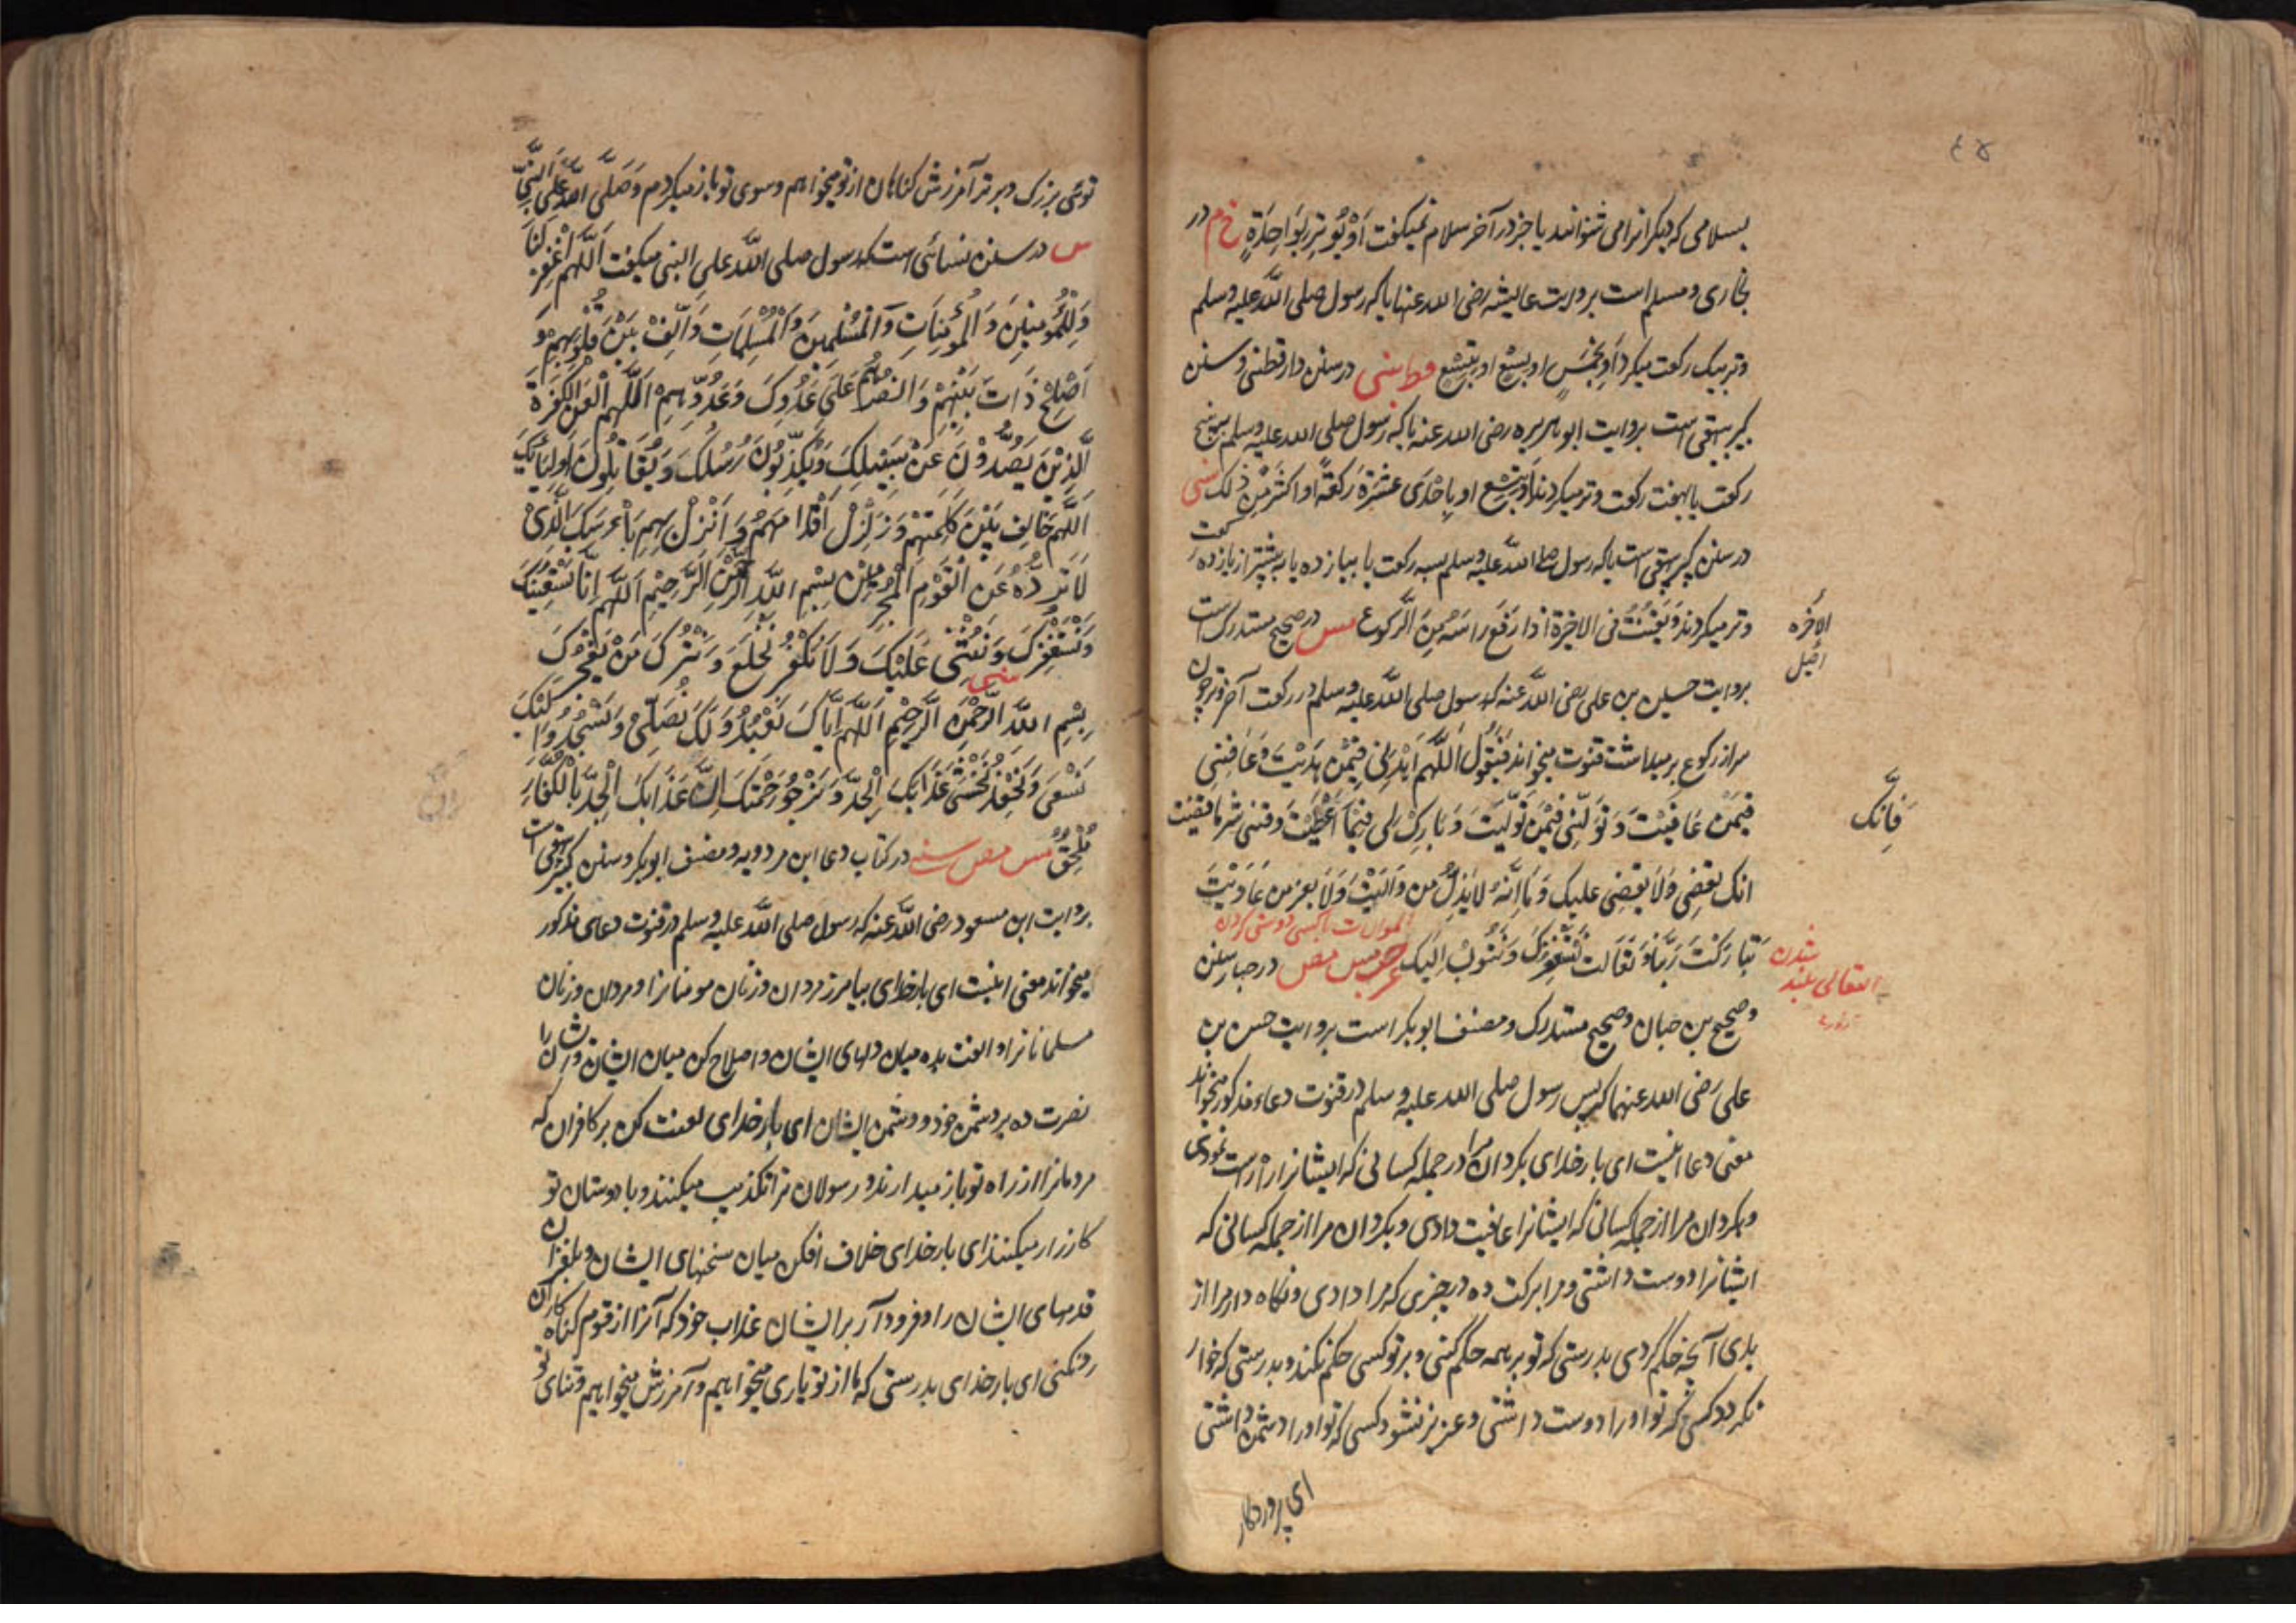 ٤٥
بسلامی که دیگرانرا می شنوانند یا جز در آخر سلام نمیگفت اَوْ یُوتِرِ بِوَاحِدَةٍ خ م در
بخاری و مسلم است بروایت عایشه رضی الله عنها یا که رسول صلی اللّه علیه وسلم
وتر بیک رکعت میکرد اَو بِخَمْسٍ او بِسَبْعٍ او بِتِسْعٍ قط سنی در سنن دارقطنی و سنن
کبیر بیهقی است بروایت ابو هریره رضی الله عنه یا که رسول صلی الله علیه وسلم به پنج
رکعت یا بهفت رکعت وتر میکردند اَو بِتِسْعٍ او بِاِحْدَی عَشْرَةَ رَکْعَةً او اکثَرَ مِن ذٰلک سنی
در سنن کبیر بیهقی است یا که رسول صلی اللّه علیه وسلم بسه رکعت یا بیازده یا به بیشتر از یازده رکعت
وتر میکردند وَ یَقْنُتُ فی الاخِرة اذا رَفَعَ رَاسَهُ مِنَ الرّکوع مس در صحیح مستدرک است
الاخره
اصل
بروایت حسین بن علی رضی اللّه عنه که رسول صلی اللّه علیه وسلم در رکعت آخر وتر چون
سر از رکوع بر میداشت قنوت میخواند فَیَقُولُ اَللّٰهُمَّ اهْدِنِی فِیْمَنْ هَدَیْتَ وَ عَافِنِی
فِیْمَنْ عَافَیْتَ وَ تَوَلَّنِی فِیْمَنْ تَوَلَّیْتَ وَ بَارِکْ لِی فِیْمَا اَعْطَیْتَ وَقِنِی شَرَّ مَا قَضَیْتَ
فَاِنَّک
انک تَقْضِی وَلَا یُقْضٰی علیک وَ اِنَّهُ لَا یَذِلُّ مَن وَالَیْتَ وَلَا یعز من عَادَیْتَ
الموالات با کسی دوستی کردن
تَبَارَکْتَ رَبَّنَا وَ تَعَالَیت نَسْتَغْفِرُکَ وَ نَتُوبُ اِلَیک عه حب مس مص در چهار سنن
التعالی بلند شدن
و صحیح بن حبان و صحیح مستدرک و مصنف ابوبکر است بروایت حسن بن
علی رضی الله عنهما که پس رسول صلی الله علیه وسلم در قنوت دعاء مذکور میخواند
معنی دعا اینست ای بار خدای بگردان مرا در جمله کسانی که ایشانرا راه راست نمودی
و بگردان مرا از جمله کسانی که ایشانرا عافیت دادی و بگردان مرا از جمله کسانی که
ایشانرا دوست داشتی و مرا برکت ده در چیزی که مرا دادی و نگاه دار مرا از
بدی آنچه حکم کردی بدرستی که تو بر همه حکم کنی و بر تو کسی حکم نکند و بدرستی که خوار
نگردد کسی که تو او را دوست داشتی و عزیز نشود کسی که تو او را دشمن داشتی
ای پروردگار
توئی بزرگ و برتر آمرزش گناهان از تو میخواهم و سوی تو باز میگردم وَ صَلَّی اللّه عَلَی النَّبِیِّ
س در سنن نسائی است که رسول صلی اللّه علی النبی میگفت اَللّٰهُمَّ اغْفِرْ لَنَا
وَلِلْمُؤْمِنِیْنَ وَالْمُؤْمِنَاتِ وَالْمُسْلِمِیْنَ وَالْمُسْلِمَاتِ وَاَلِّفْ بَیْنَ قُلُوبِهِمْ وَ
اَصْلِحْ ذَاتَ بَیْنِهِمْ وَانْصُرْهُمْ عَلَی عَدُوِّکَ وَعَدُوِّهِمْ اَللّٰهُمَّ الْعَنِ الْکَفَرَةَ
الَّذِیْنَ یَصُدُّوْنَ عَنْ سَبِیْلِکَ وَیُکَذِّبُوْنَ رُسُلَکَ وَیُقَاتِلُوْنَ اَوْلِیَائَکَ
اَللّٰهُمَّ خَالِفْ بَیْنَ کَلِمَتِهِمْ وَزَلْزِلْ اَقْدَامَهُمْ وَاَنْزِلْ بِهِمْ بَاْسَکَ الَّذِیْ
لَا تَرُدُّهُ عَنِ الْقَوْمِ الْمُجْرِمِیْنَ بِسْمِ اللّٰهِ الرَّحْمٰنِ الرَّحِیْمِ اَللّٰهُمَّ اِنَّا نَسْتَعِیْنُکَ
وَنَسْتَغْفِرُکَ وَنُثْنِی عَلَیْکَ وَلَا نَکْفُرُکَ نَخْلَعُ وَنَتْرُکُ مَنْ یَفْجُرُکَ سنی
بِسْمِ اللّٰهِ الرَّحْمٰنِ الرَّحِیْمِ اَللّٰهُمَّ اِیَّاکَ نَعْبُدُ وَلَکَ نُصَلِّیْ وَنَسْجُدُ وَاِلَیْکَ
نَسْعٰی وَنَحْفِدُ نَخْشٰی عَذَابَکَ الْجِدَّ وَنَرْجُوْ رَحْمَتَکَ اِنَّ عَذَابَکَ الْجِدَّ بِالْکُفَّارِ
مُلْحِقٌ مس مص سنی در کتاب دعا ابن مردویه و مصنف ابوبکر و سنن کبیر بیهقی است
بروایت ابن مسعود رضی اللّه عنه که رسول صلی اللّه علیه وسلم در قنوت دعای مذکور
میخواند معنی اینست ای بار خدای بیامرز مردان و زنان مومنانرا و مردان و زنان
مسلمانانرا و الفت بده میان دلهای ایشان و اصلاح کن میان ایشان و ایشان را
نصرت ده بر دشمن خود و دشمن ایشان ای بار خدای لعنت کن بر کافران که
مردمانرا از راه تو باز میدارند و رسولان ترا تکذیب میکنند و با دوستان تو
کارزار میکنند ای بار خدای خلاف افکن میان سخنهای ایشان و بلغزان
قدمهای ایشان را و فرود آر بر ایشان عذاب خود که آنرا از قوم گناه کاران
رد نکنی ای بار خدای بدرستی که ما از تو یاری میخواهیم و آمرزش میخواهیم و ثنای تو